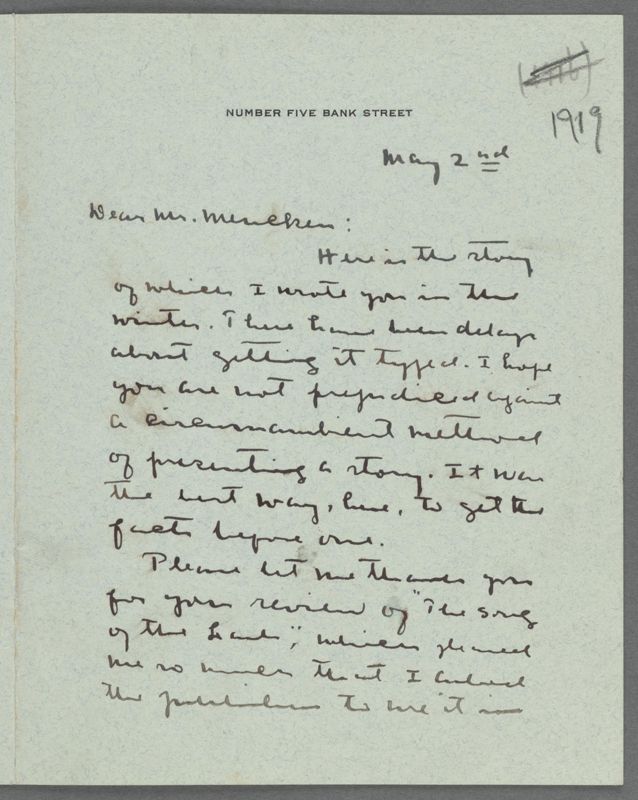 NUMBER FIVE BANK STREET
1919
May 2nd
Dear Mr. Mencken:
Here is the story
of which I wrote you in the
winter. There have been delays
about getting it typed. I hope
you are not prejudiced against
a circumambient method
of presenting a story. It was
the best way, here, to get the
facts before one.
Please let me thank you
for your review of "The Song
of the Lark", which pleased
me so much that I asked
the publishers to use it in